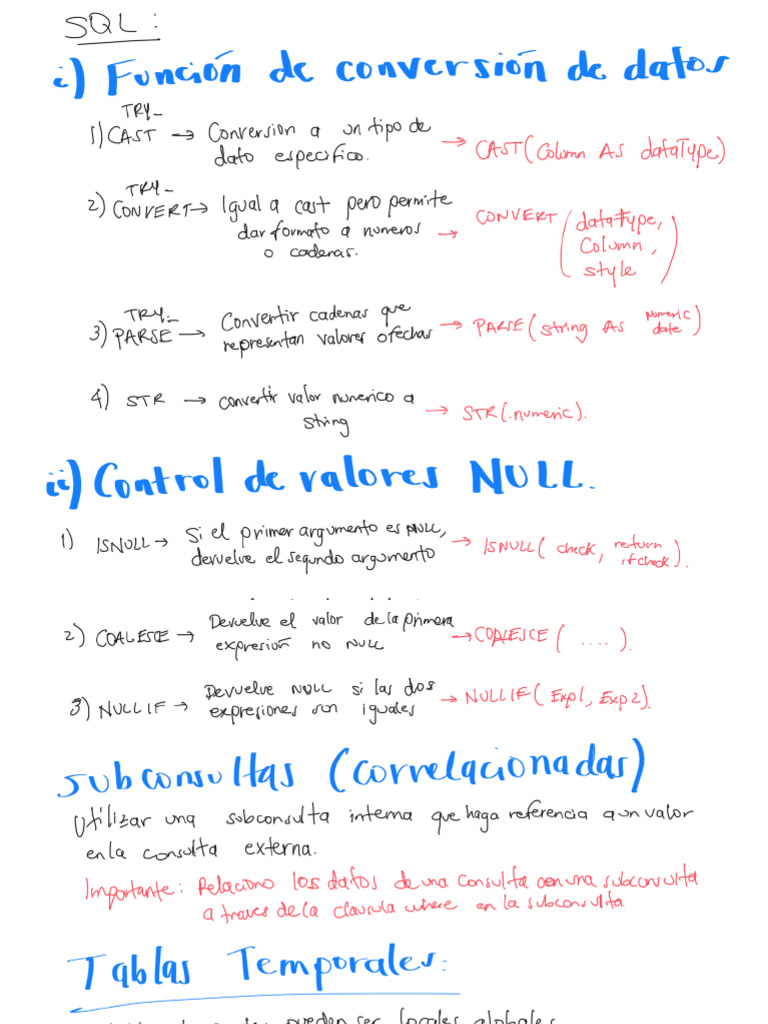 SQL:
i) Función de conversión de datos
TRY_
1) CAST → Conversion a un tipo de dato especifico. → CAST(Column AS dataType)
TRY_
2) CONVERT → Igual a cast pero permite dar formato a numeros o cadenas. → CONVERT (dataType, Column, style)
TRY_
3) PARSE → Convertir cadenas que representan valores o fechas → PARSE(string AS numeric date)
4) STR → convertir valor numerico a string → STR(.numeric).
ii) Control de valores NULL.
1) ISNULL → Si el primer argumento es NULL, devuelve el segundo argumento → ISNULL( check, return if check).
2) COALESCE → Devuelve el valor de la primera expresión no NULL → COALESCE ( .... ).
3) NULLIF → Devuelve NULL si las dos expresiones son iguales → NULLIF( Exp1, Exp2).
Subconsultas (correlacionadas)
Utilizar una subconsulta interna que haga referencia a un valor
en la consulta externa.
Importante: Relaciono los datos de una consulta con una subconsulta
a traves de la clausula where en la subconsulta
Tablas Temporales:
pueden ser locales globales